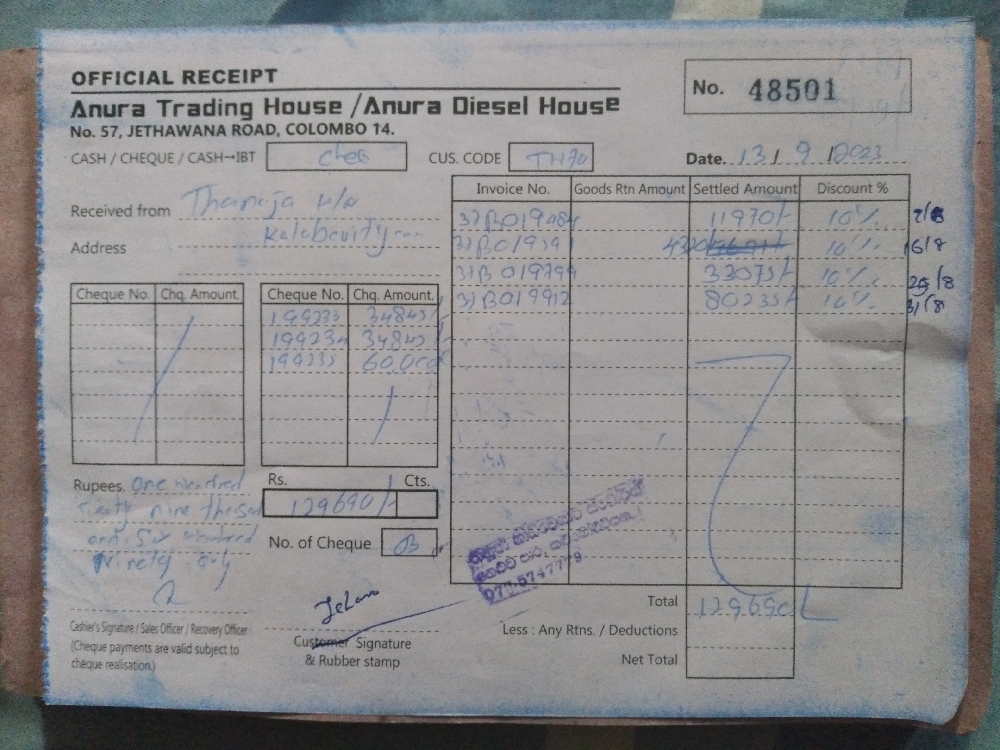 OFFICIAL RECEIPT
Anura Trading House /Anura Diesel House
No. 57, JETHAWANA ROAD, COLOMBO 14.
No. 48501
CASH / CHEQUE / CASH→IBT CUS. CODE TH70
Date. 13/ 9 /2023
Received from Thanuja
Address
Invoice No. Goods Rtn Amount Settled Amount Discount %
31B019484 11970/- 10%
10% 16/8
31B019799 33075/- 10%
31B019912 80235/- 10% 31/8
Cheque No. Chq. Amount. Cheque No. Chq. Amount.
199233 34845/-
199234 34845/-
199235 60,000/-
Rupees. one hundred
nine thousand
and six hundred
Ninety only
Rs. Cts.
129690/-
No. of Cheque 03
077-5747779
Total 129690/-
Less : Any Rtns. / Deductions
Net Total
Cashier's Signature / Sales Officer / Recovery Officer
(Cheque payments are valid subject to
cheque realisation.)
Customer Signature
& Rubber stamp